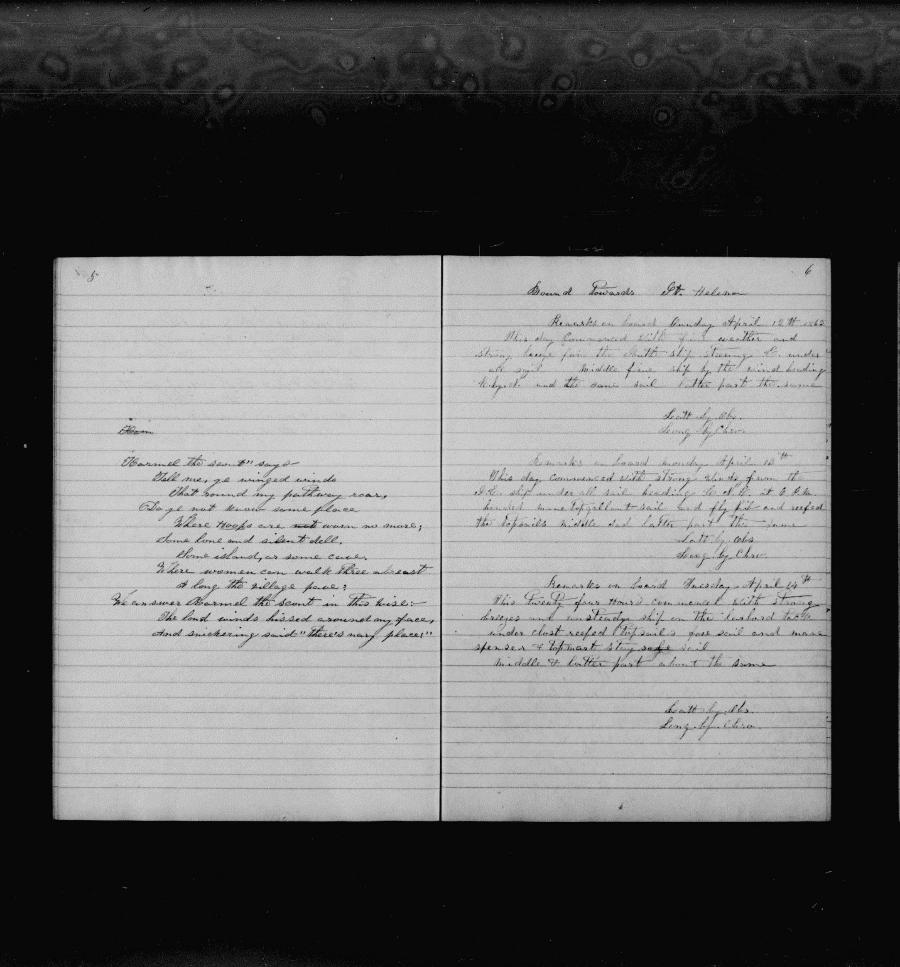 5
Ham
Harmel the scout" says
Tell me, ye winged winds
That round my pathway roar,
Do ye not know some place
Where Hoops are not worn no more;
Some lone and silent dell,
Some island, or some cave,
Where women can walk three abreast
Along the village pave?
We answer Harmel the scout in this wise:
The loud winds hissed around my face,
And snickering said "There's nary place!"
6
Bound Towards St. Helena
Remarks on board Sunday April 12th 1863
This day Commenced with fine weather and
Strong breeze from the South ship Steering E. under
all sail Middle fine ship by the wind heading
and the same sail latter part the same
Latt by Obs.
Long by Chro.
Remarks on board Monday April 13th
This day commenced with strong winds from the
ship under all sail heading at 6 P.M.
handed main topgallant sail and fly jib and reefed
the topsails middle and latter part the same
Latt by Obs
Long by Chro.
Remarks on board Tuesday April 14th
This Twenty four Hours commenced with strong
breezes and unsteady ship on the larbord tack
under close reefed topsails fore sail and main
spenser & topmast stay sail
middle & latter part about the same
Latt by Obs.
Long by Chro.